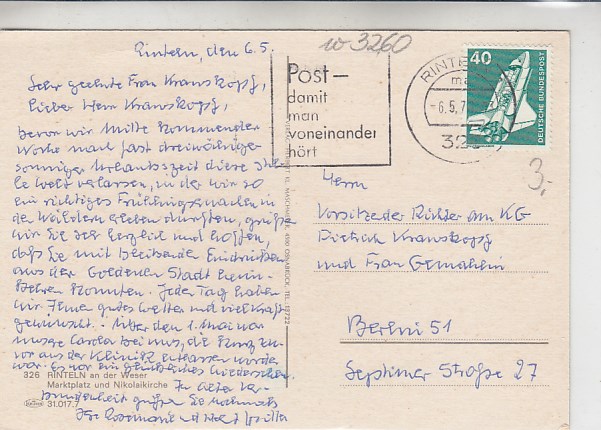 Rinteln, den 6.5.
Sehr geehrte Frau Kranskopf,
lieber Herr Kranskopf,
bevor wir Mitte kommender
Woche nach fast dreiwöchiger
sonniger Urlaubszeit diese
Welt verlassen, in der wir so
ein richtiges Frühlingserwachen in
den Wäldern erleben durften, grüßen
wir Sie sehr herzlich und hoffen,
daß Sie mit bleibenden Eindrücken
aus der Goldenen Stadt heim-
kehren konnten. Jeden Tag haben
wir Ihnen gutes Wetter und viel Kraft
gewünscht. Über den 1. Mai war
unsere Carola bei uns, die kurz zu-
vor aus der Klinik entlassen worden
war. Es war ein glückliches Wiedersehen.
In alter Ver-
bundenheit grüßen Sie nochmals
Ihre Rosemarie und
326 RINTELN an der Weser
Marktplatz und Nikolaikirche
31.017.7
OSNABRÜCK, TEL.
w 3260
Post-
damit
man
voneinander
hört
RINTEL
-6.5.7
40
DEUTSCHE BUNDESPOST
3,-
Herrn
Vorsitzender Richter am KG
Dietrich Kranskopf
und Frau Gemahlin
Berlin 51
Septimer Straße 27